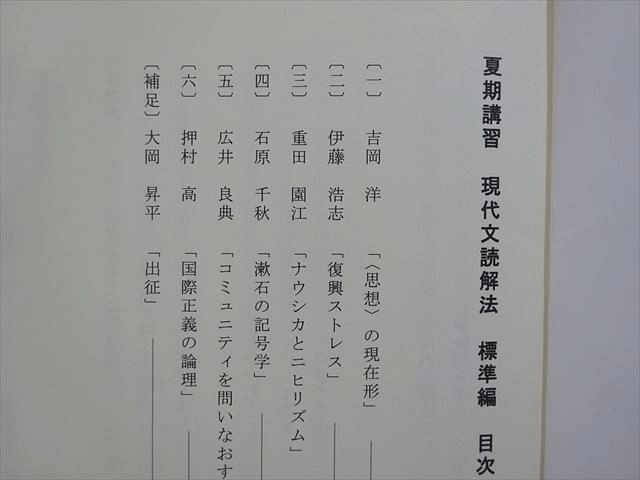 夏期講習　現代文読解法　標準編　目次
〔一〕　吉岡　洋　「〈思想〉の現在形」
〔二〕　伊藤　浩志　「復興ストレス」
〔三〕　重田　園江　「ナウシカとニヒリズム」
〔四〕　石原　千秋　「漱石の記号学」
〔五〕　広井　良典　「コミュニティを問いなおす
〔六〕　押村　高　「国際正義の論理」
〔補足〕　大岡　昇平　「出征」